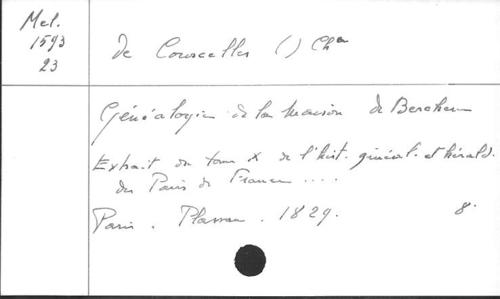 Mel.
1593
23
de Courcelles () Ch^er
Généalogie de la maison de Berchem
Extrait du tome X de l'hist. généal. et hérald.
des Pairs de France ....
Paris. Plassan. 1829. 8.